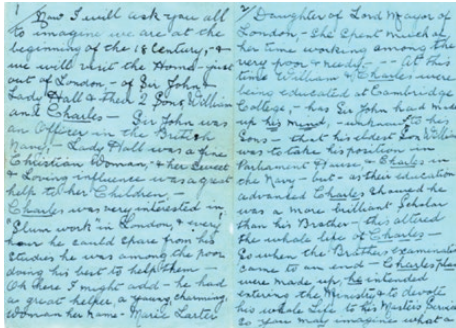 1
Now I will ask you all
to imagine we are at the
beginning of the 18 Century, - &
we will visit the Home - just
out of London, - of Sir John &
Lady Hall & their 2 Sons, William
and Charles - Sir John was
an Officer in the British
Navy, - Lady Hall was a fine
Christian Woman, & her Sweet
& Loving influence was a great
help to her Children -
Charles was very interested in
"Slum work" in London, & every
hour he could spare from his
Studies he was among the poor
doing his best to help them -
Oh there I might add - he had
a great helper, a young, charming,
woman her name - Marie
2/ Daughter of Lord Mayor of
London, - She Spent much of
her time working among the
very poor & needy - - - At this
time William & Charles were
being educated at Cambridge
College, - has Sir John had made
up his mind, - unknown to his
Sons - that his eldest Son William
was to take his position in
Parliament House, & Charles in
the Navy - but - as their education
advanced Charles Showed he
was a more brilliant Scholar
than his Brother - this altered
the whole life of Charles -
So when the Brothers examinations
came to an end - Charles plans
were made up, he intended
entering the Ministry & to devote
his whole Life to his Masters Service
So you may imagine what a